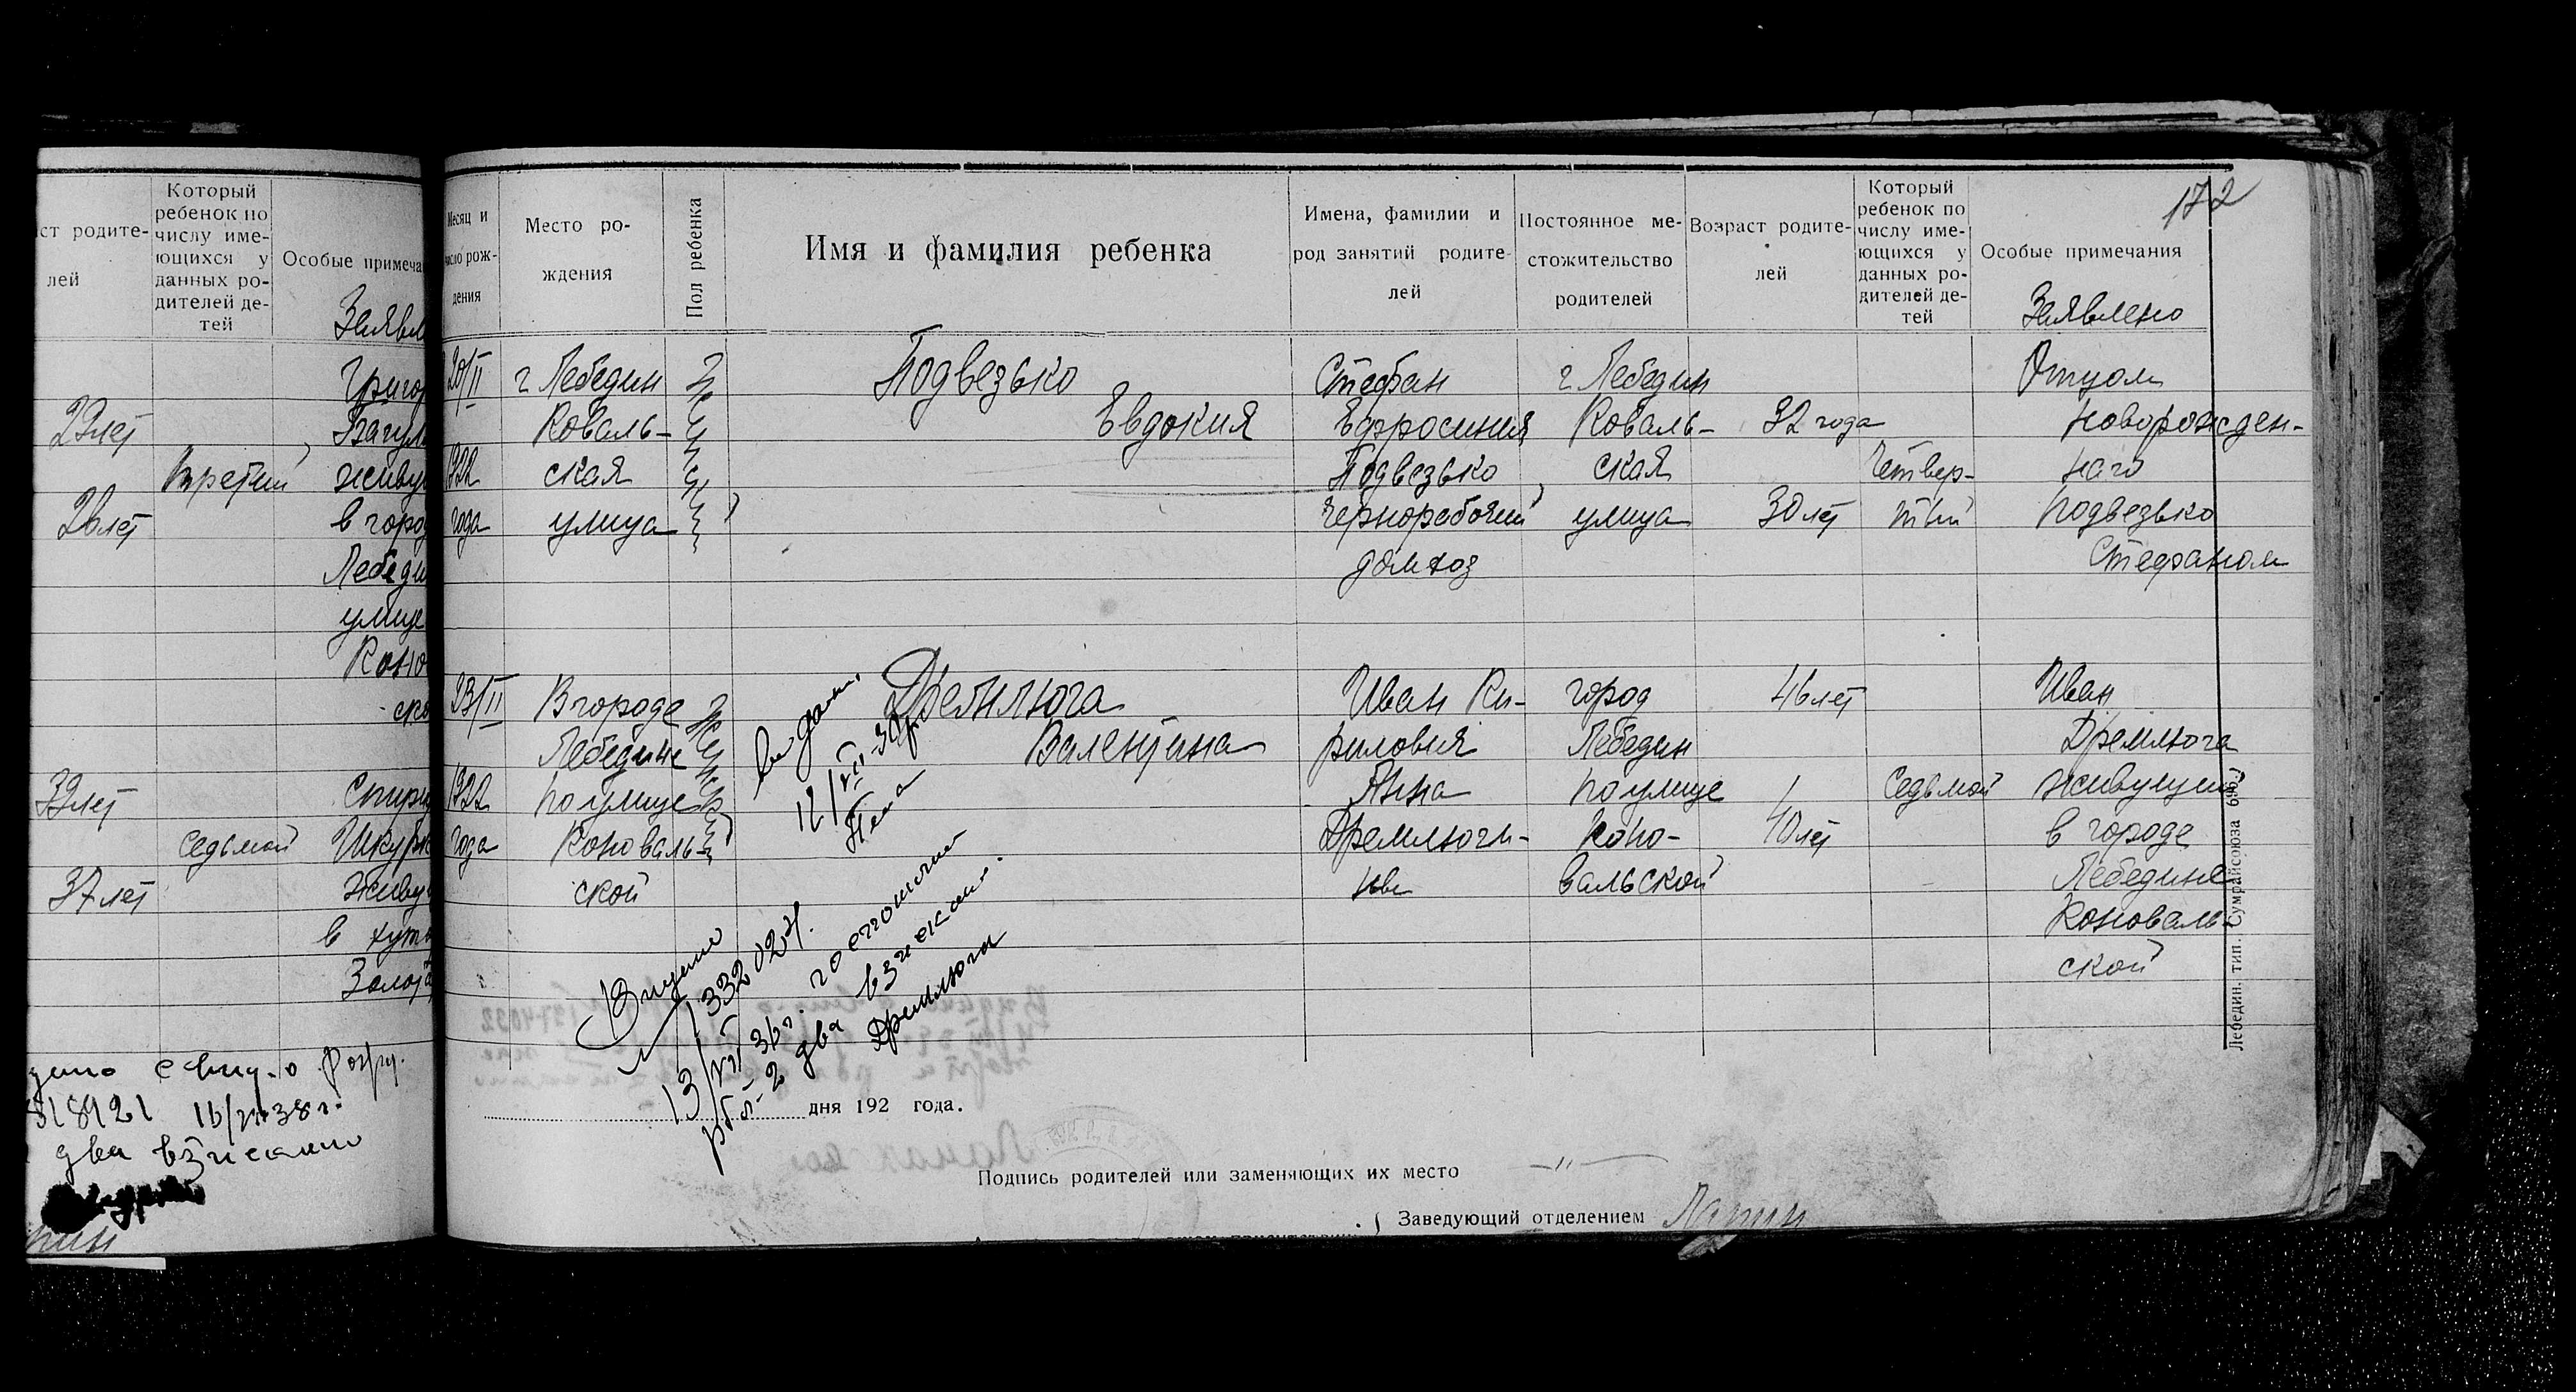 ст родите-
лей
Который
ребенок по
числу име-
ющихся у
данных ро-
дителей де-
тей
Особые примеча
Заявл
Григор
23 лет
Загул
третий
живу
26 лет
в город
Лебеди
улице
Коно
ско
39 лет
Спири
седьмой
Шкур
37 лет
живу
в хут
Золот
818121 16/VII 38 г.
два взискано
172
Месяц и
число рож-
дения
Место ро-
ждения
Пол ребенка
Имя и фамилия ребенка
Имена, фамилии и
род занятий родите-
лей
Постоянное ме-
стожительство
родителей
Возраст родите-
лей
Который
ребенок по
числу име-
ющихся у
данных ро-
дителей де-
тей
Особые примечания
Заявлено
20/II
1922
года
г Лебедин
Коваль-
ская
улица
Женск
Подвезько
Евдокия
Стефан
Ефросиния
Подвезько
Чернорабочий
домхоз
г Лебедин
Коваль-
ская
улица
32 года
30 лет
Четвер-
тый
Отцом
новорожден-
наго
Подвезько
Стефаном
23/II
1922
года
В городе
Лебедине
по улице
Коноваль-
ской
Женск
Дремлюга
Валентина
Иван Ки-
рилович
Анна
Дремлюги-
на
город
Лебедин
по улице
Коно-
вальской
46 лет
40 лет
Седьмой
Иван
Дремлюга
живущий
в городе
Лебедине
Коноваль-
ской
Видано
12/VII
332024.
13/VII 38 г.
2 два взискано.
Дремлюги
дня 192 года.
Подпись родителей или заменяющих их место
—"—
Заведующий отделением
Лебедин. тип. Сумрайсоюза 696.